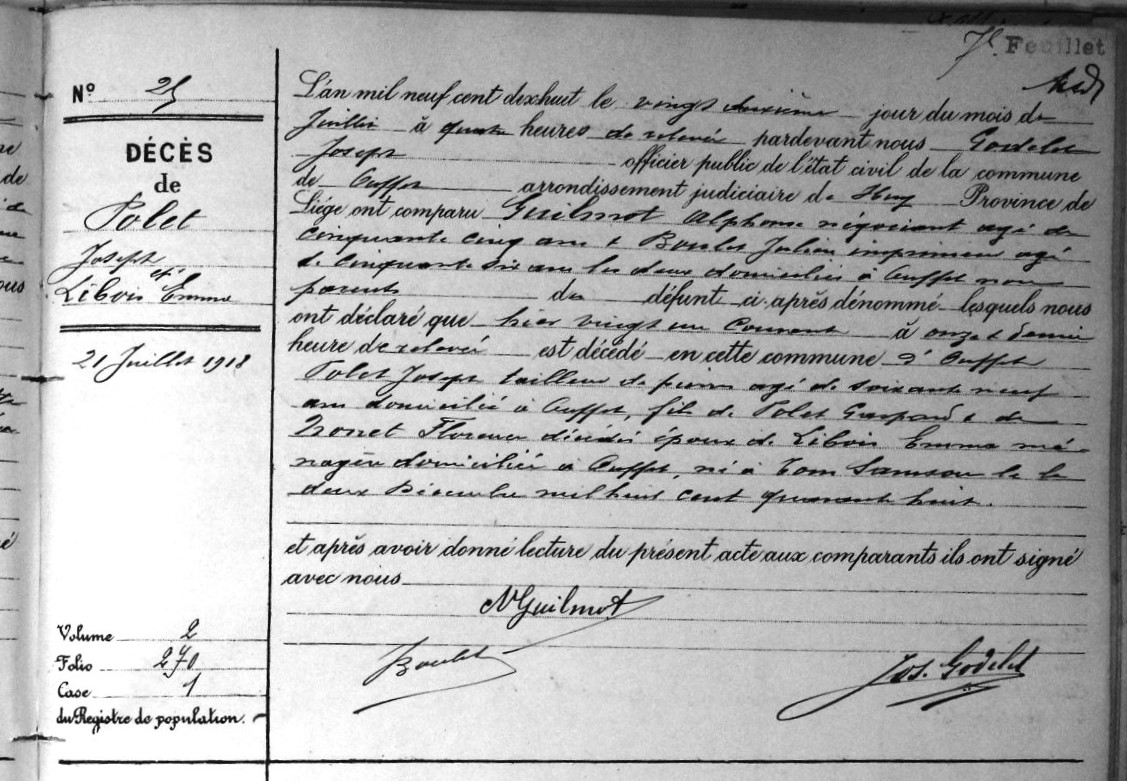 7e Feuillet
Nº 25
DÉCÈS
de
Polet
Joseph
ép.
Libois Emma
21 Juillet 1918
Volume 2
Folio 270
Case 1
du Registre de population.
L'an mil neuf cent dixhuit le vingt deuxième jour du mois de
Juillet à quatre heures de relevée pardevant nous Godelet
Joseph officier public de l'état civil de la commune
de Ouffet arrondissement judiciaire de Huy Province de
Liége ont comparu Guilmot Alphonse négociant agé de
cinquante cinq ans & Boulet Julien imprimeur agé
de cinquante six ans les deux domiciliés à Ouffet non
parents du défunt ci-après dénommé lesquels nous
ont déclaré que hier vingt un courant à onze & demie
heure de relevée est décédé en cette commune d'Ouffet
Polet Joseph tailleur de pierres agé de soixante neuf
ans domicilié à Ouffet, fils de Polet Gaspard & de
Florence décédés époux de Libois Emma mé-
nagère domiciliée à Ouffet, né à Samson le
deux Décembre mil huit cent quarante huit.
et après avoir donné lecture du présent acte aux comparants ils ont signé
avec nous
Guilmot
Boulet
Jos. Godelet